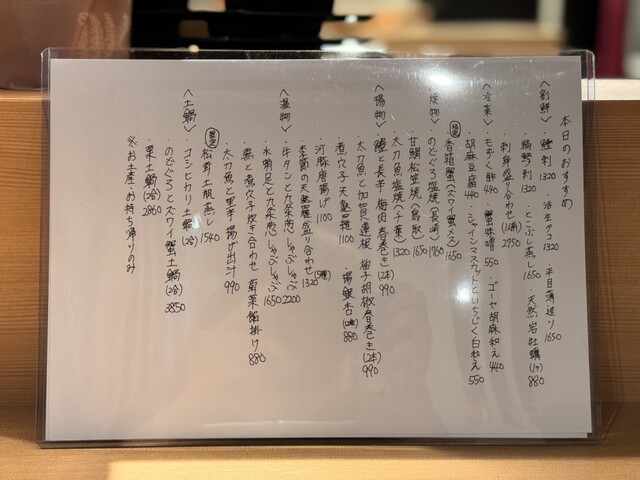 本日のおすすめ
〈割鮮〉
・鰹刺 1320 ・活生タコ 1320 ・平目薄造り 1650
・縞鯵刺 1320 ・とこぶし蒸し 1650 ・天然岩牡蠣(1ケ) 880
・刺身盛り合わせ(1人前) 2750
〈冷菜〉
・モずく酢 440 ・蟹味噌 550 ・ゴーヤ胡麻和え 440
・胡麻豆腐 440 ・シャインマスカットといちじく白和え 550
〈焼物〉
・香箱蟹(ズワイ蟹メス) 1650
・のどぐろ塩焼(長崎) 1760
・甘鯛松笠焼(鳥取) 1650
・太刀魚塩焼(千葉) 1320
〈揚物〉
・鱧と長芋 梅肉春巻き(2本) 990
・太刀魚と加賀蓮根 柚子胡椒春巻き(2本) 990
・煮穴子天麩羅 1100 ・揚銀杏 880
・河豚唐揚げ 1100
・季節の天麩羅盛り合わせ 1320
〈温物〉
・牛タンと九条葱しゃぶしゃぶ 2200
・水蛸足と九条葱しゃぶしゃぶ 1650
・煮穴子炊き合わせ 菊菜餡掛け 880
・太刀魚と里芋 揚げ出汁 990
・松茸土瓶蒸し 1540
〈土鍋〉
・コシヒカリ土鍋(2合)
・のどぐろとズワイ蟹土鍋(2合) 3850
・栗土鍋(2合) 2860
※お土産・お持ち帰りのみ